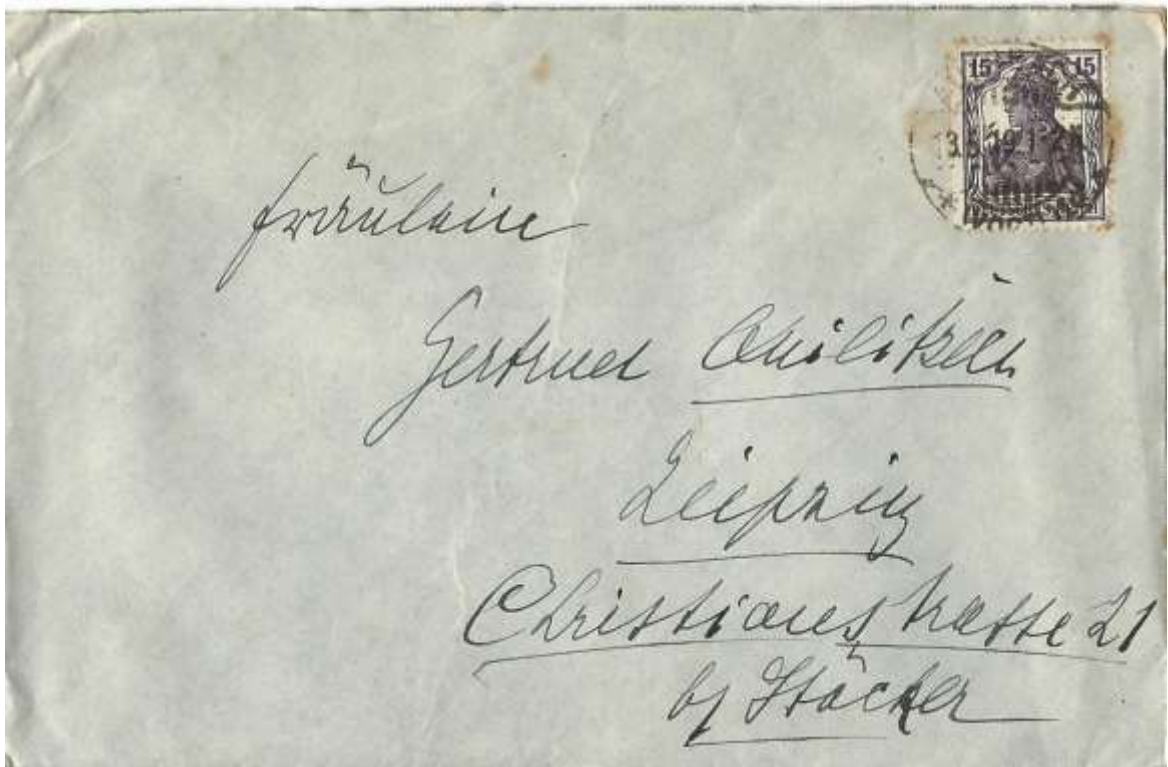 15 15
Fräulein
Gertrud
Leipzig
Christianstrasse 21
b/ Stäcker